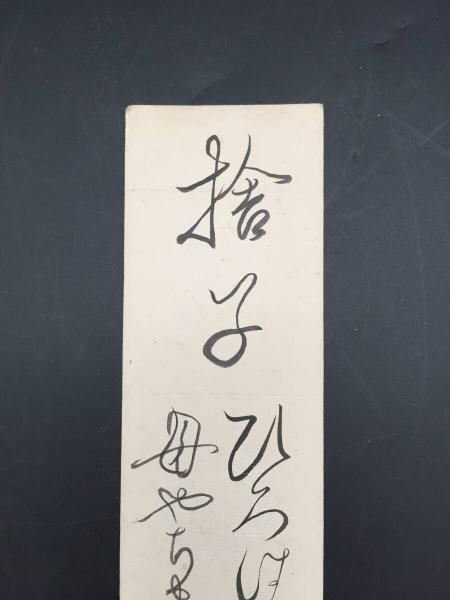 捨子
ひろは
母やち